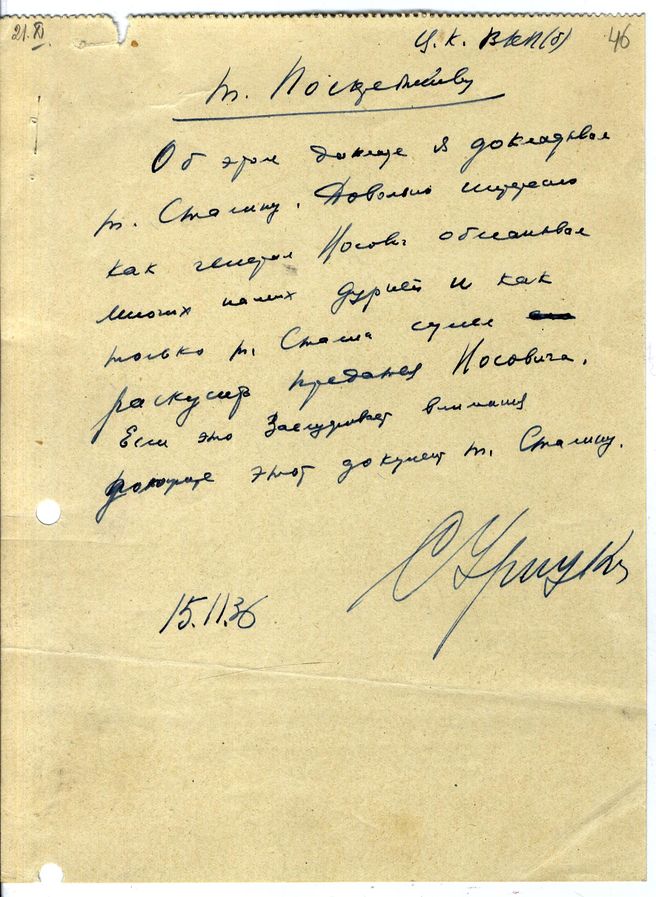 21.XI
Ц.К. ВКП(б)
46
т. Поскребышеву
Об этом докладе я докладывал
т. Сталину. Довольно интересно
как генерал Носович обманывал
многих наших дурней и как
только т. Сталин сумел
раскусить предателя Носовича.
Если это заслуживает внимания
доложите этот документ т. Сталину.
С Урицкий
15.11.36